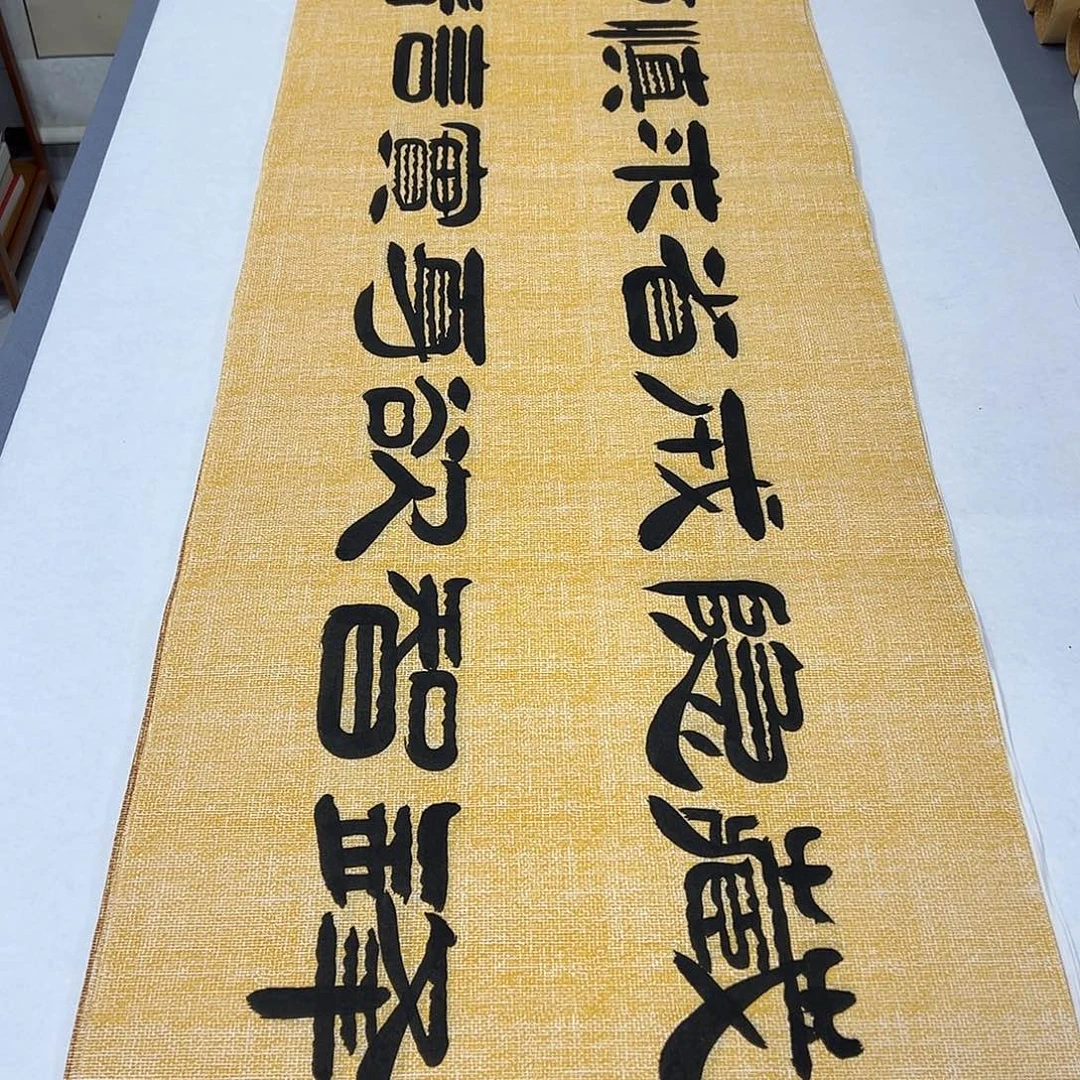 慎求省戒隱藏
言實身欲智